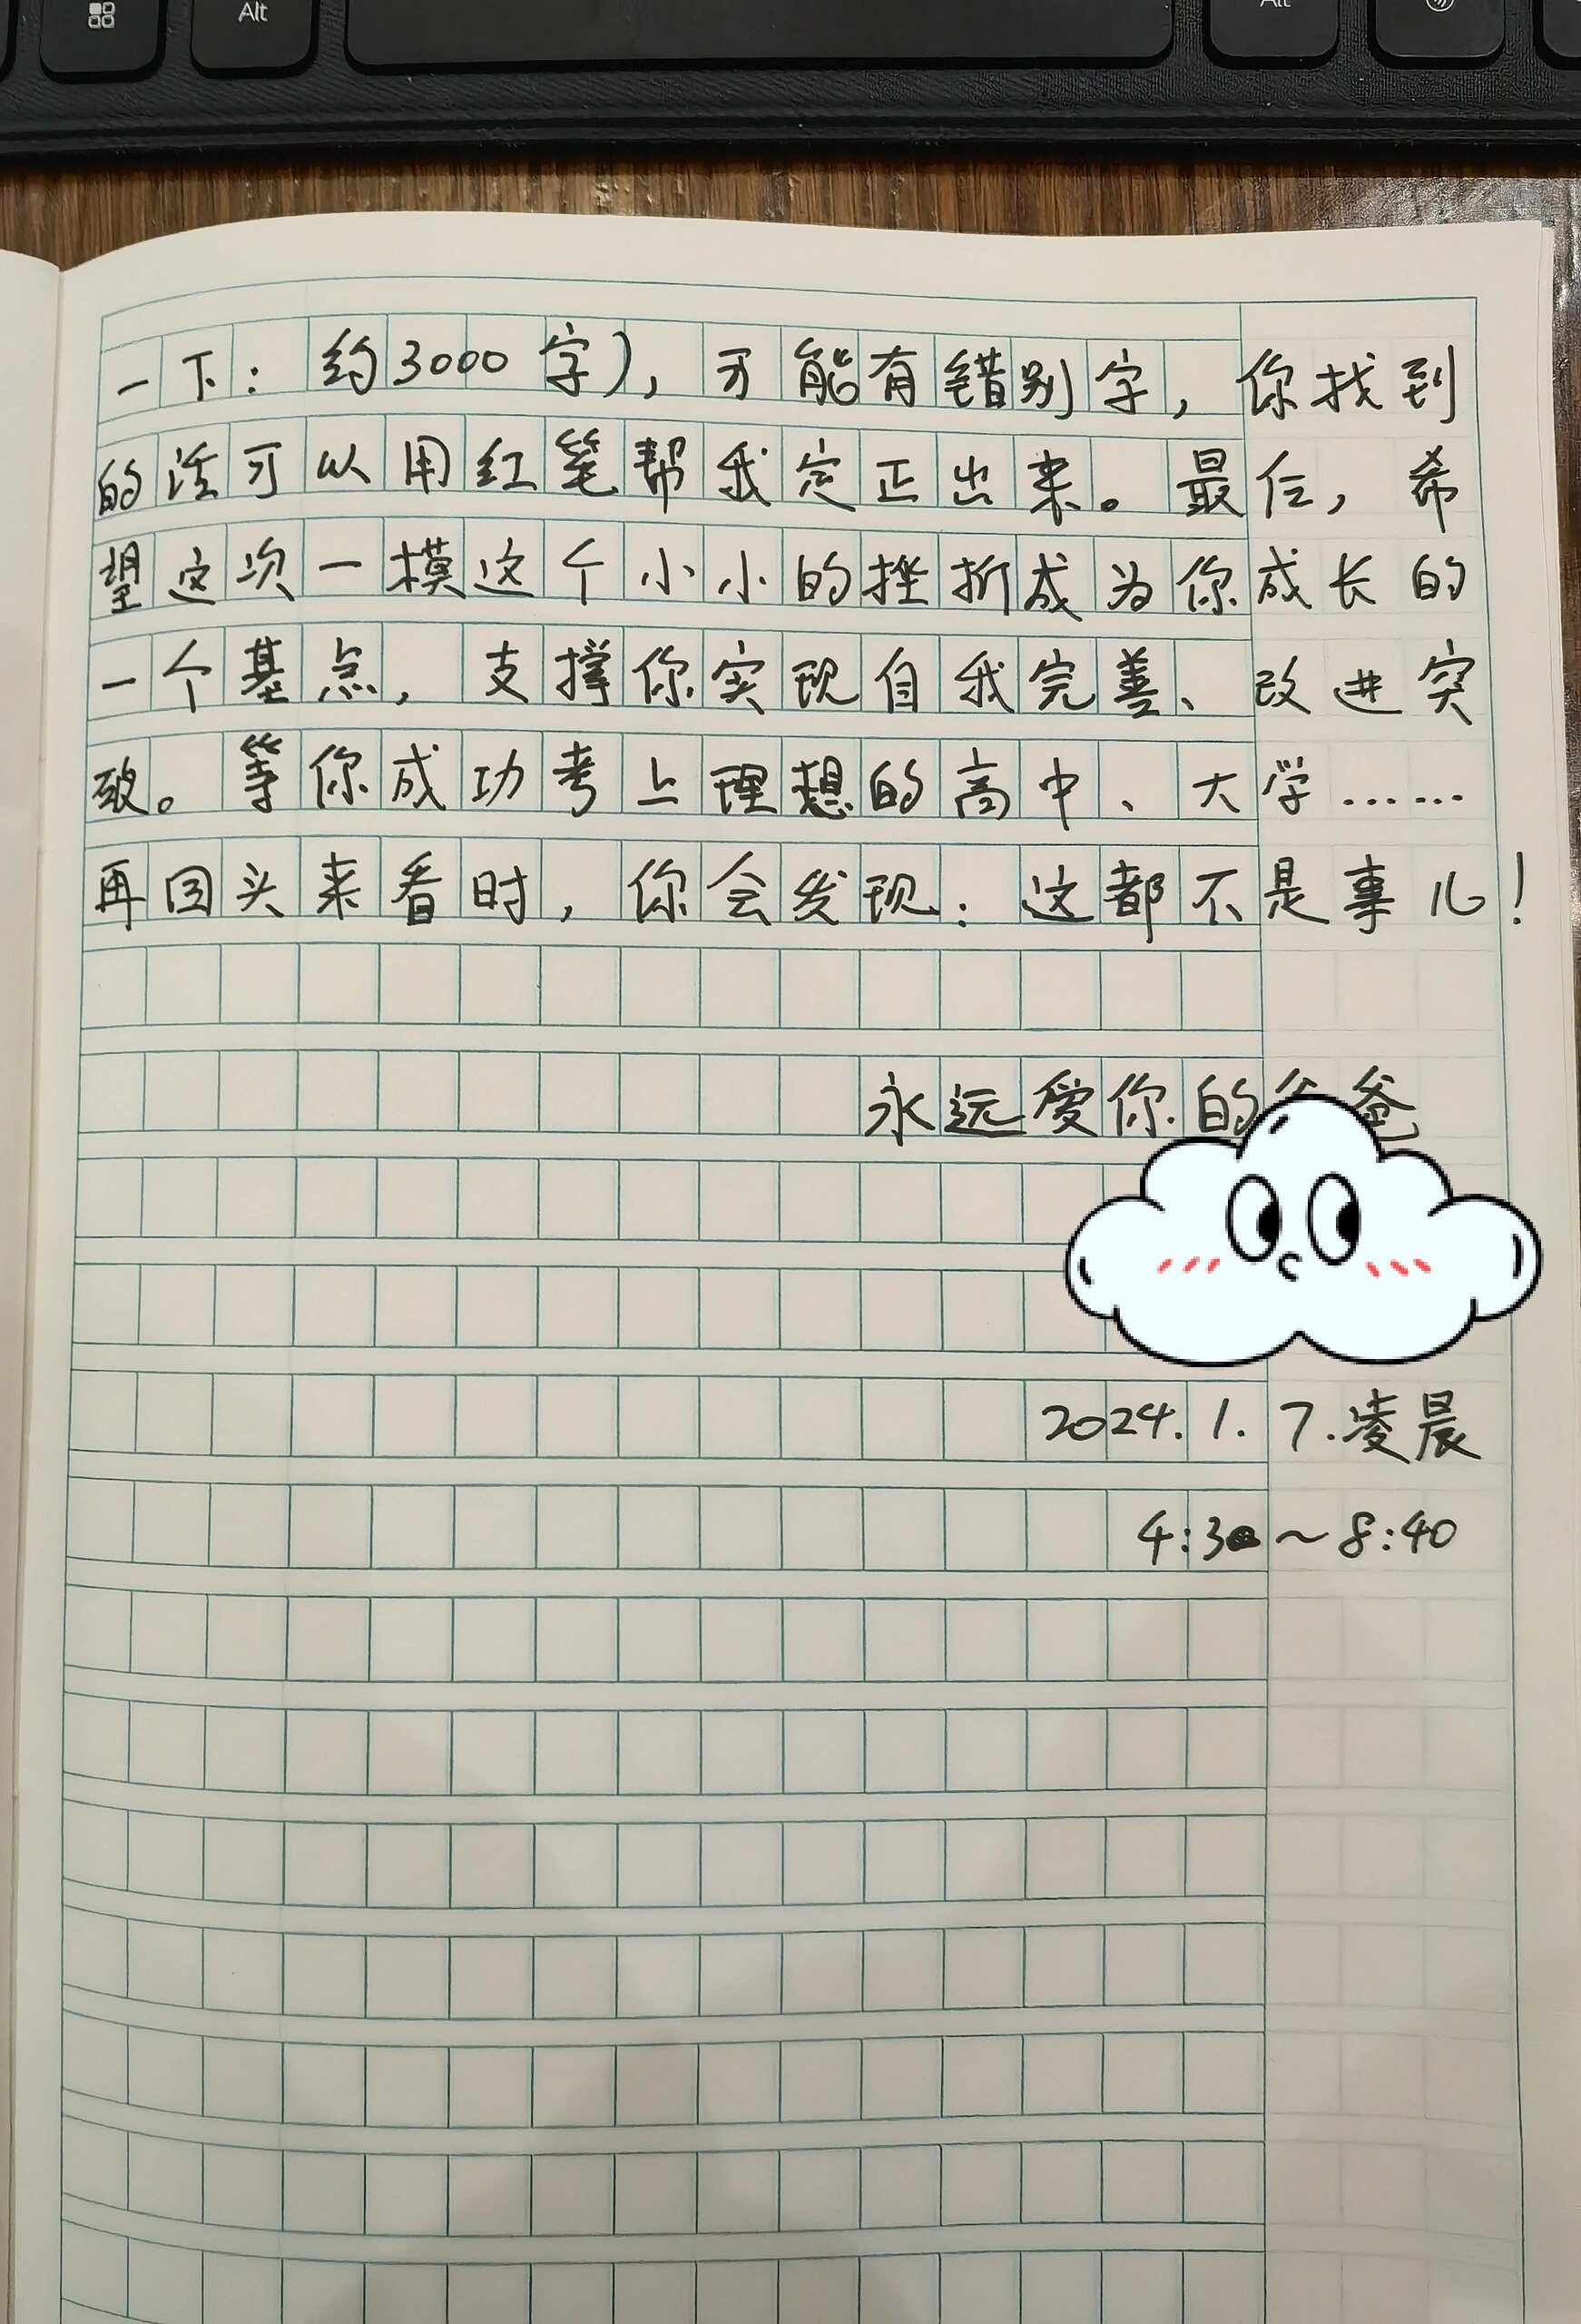 Alt
Alt
一下：约3000字），可能有错别字，你找到
的话可以用红笔帮我定正出来。最后，希
望这次一模这个小小的挫折成为你成长的
一个基点，支撑你实现自我完善、改进突
破。等你成功考上理想的高中、大学……
再回头来看时，你会发现：这都不是事儿！
永远爱你的爸爸
2024.1.7.凌晨
4:30～8:40